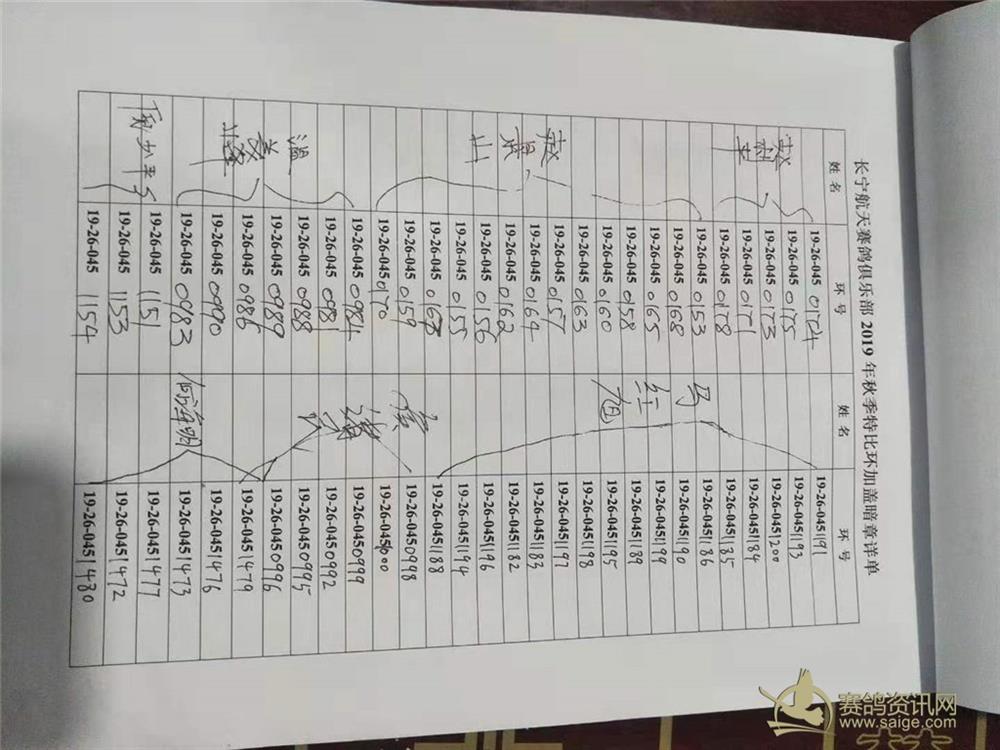 长宁航天赛鸽俱乐部 2019 年秋季特比环加盖暗章详单
姓 名 环 号 姓 名 环 号
19-26-045 0174 19-26-0451191
19-26-045 0175 19-26-0451193
赵 19-26-045 0173 19-26-0451200
19-26-045 0171 19-26-0451184
19-26-045 0178 19-26-0451185
19-26-045 0153 马 19-26-0451186
19-26-045 0168 19-26-0451190
19-26-045 0165 红 19-26-0451199
19-26-045 0158 19-26-0451189
19-26-045 0160 旭 19-26-0451195
19-26-045 0163 19-26-0451198
赵 19-26-045 0157 19-26-0451197
19-26-045 0164 19-26-0451183
景 19-26-045 0162 19-26-0451182
19-26-045 0156 19-26-0451196
山 19-26-045 0155 19-26-0451194
19-26-045 19-26-0451188
19-26-045 0159 侯 19-26-0450998
19-26-045 0170 19-26-0451000
19-26-045 0984 19-26-0450999
19-26-045 0981 19-26-0450992
温 19-26-045 0988 19-26-0450995
19-26-045 0989 19-26-0450996
19-26-045 0986 19-26-0451479
19-26-045 0990 19-26-0451476
19-26-045 0983 何海明 19-26-0451473
19-26-045 1151 19-26-0451477
19-26-045 1153 19-26-0451472
19-26-045 1154 19-26-0451480
赛鸽资讯网
www.saige.com